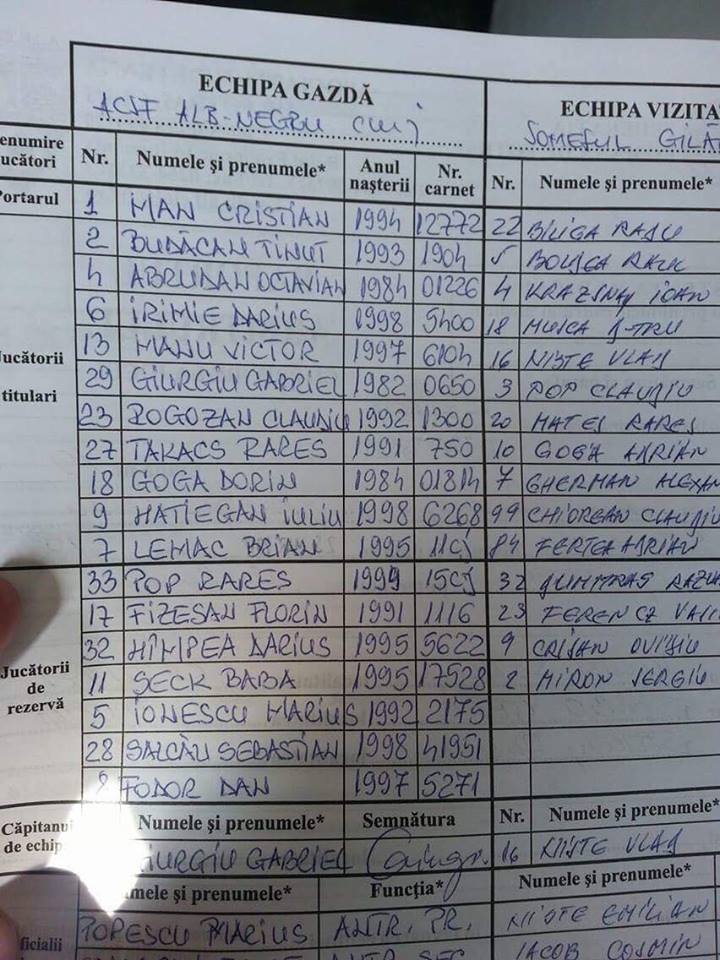 ECHIPA GAZDĂ ECHIPA VIZITA
ACSF ALB-NEGRU CLUJ SOMEȘUL GILĂ
enumire ucători Nr. Numele și prenumele* Anul nașterii Nr. carnet Nr. Numele și prenumele*
Portarul 1 MAN CRISTIAN 1994 12772 22
2 BUDĂCAN TINUT 1993 1904 5
4 ABRUDAN OCTAVIAN 1984 01226 4 IOAN
6 IRIMIE DARIUS 1998 5400 18
Jucătorii titulari 13 MANU VICTOR 1997 6104 16 NISTE VLAD
29 GIURGIU GABRIEL 1982 0650 3 POP CLAUDIU
23 ROGOZAN CLAUDIU 1992 1300 20 MATEȘ RAREȘ
27 TAKACS RARES 1991 750 10 GOGA ADRIAN
18 GOGA DORIN 1984 01814 7 GHERMAN ALEXAN
9 HATIEGAN IULIU 1998 6268 99 CHIOREAN CLAUDIU
7 LEMAC BRIAN 1995 11CJ 84 FERTEA ADRIAN
33 POP RARES 1994 15CJ 32
17 FIZESAN FLORIN 1991 1116 23 FERENCZ
Jucătorii de rezervă 32 HÎMPEA DARIUS 1995 5622 9 CRIȘAN OVIDIU
11 SECK BABA 1995 17528 2 MIRON SERGIU
5 IONESCU MARIUS 1992 2175
28 SALCĂU SEBASTIAN 1998 41951
8 FODOR DAN 1997 5271
Căpitanul de echip Numele și prenumele* Semnătura Nr. Numele și prenumele*
GIURGIU GABRIEL 16 NISTE VLAD
mele și prenumele* Funcția* Numele și prenumele*
POPESCU MARIUS ANTR. PR. NISTE EMILIAN
ficialii ANTR. SEC. IACOB COSMIN